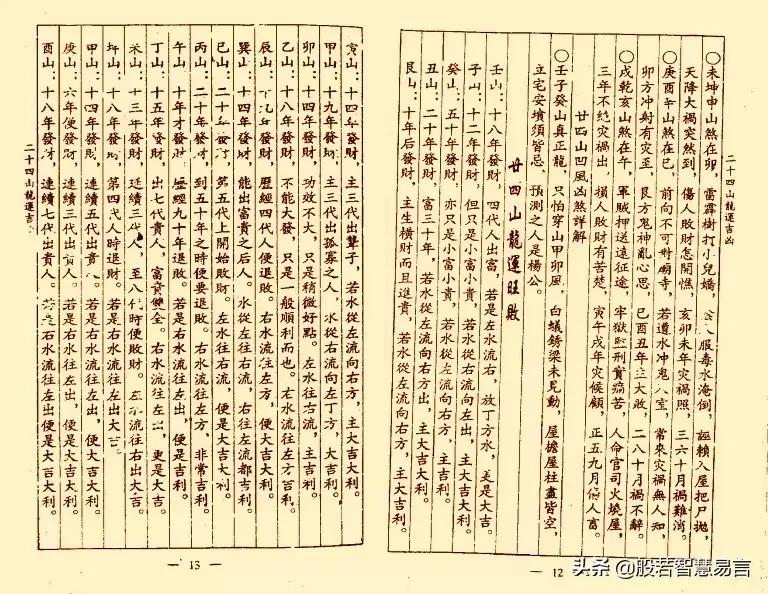 二十四山龍運吉凶
○未坤申山煞在卯，雷霹樹打小兒嬌，服毒水淹倒，誣賴入屋把尸拋，
天降大禍突然到，傷人敗財怎開憔，亥卯未年灾禍照，三六十月禍難消。
○庚酉辛山煞在巳，前向不可對廟寺，若遭水冲鬼入室，常來灾禍無人知，
卯方冲射有灾至，艮方鬼神亂心思，巳酉丑年主大敗，二八十月禍不辭。
○戌乾亥山煞在午，軍賊押送遠征途，牢獄監刑實痛苦，人命官司火燒屋，
三年不絕灾禍出，損人敗財有苦楚，寅午戌年灾候顧，正五九月傷人畜。
廿四山凹風凶煞詳解
○壬子癸山真正龍，只怕穿山甲卯風，白蟻銹梁未見動，屋檐屋柱盡皆空，
立宅安墳須皆忌，預測之人是楊公。
廿四山龍運旺敗
壬山：十八年發財，四代人出富。若是左水流右，放丁方水，更是大吉。
子山：十二年發財，但只是小富小貴，若水從右流向左出，主大吉大利。
癸山：五十年發財，亦只是小富小貴，若水從左流向右方，主大吉大利。
丑山：二十年發財，富三十年，若水從左流向右方出，主大吉大利。
艮山：十年后發財，主生橫財而且進貴，若水從左流向右方，主大吉大利。
— 12
寅山：十四年發財，主三代出聾子，若水從左流向右方，主大吉大利。
甲山：十九年發財，主三代出孤寡之人，水從右向左丁方，大吉大利。
卯山：十四年發財，功效不大，只是稍微好點。左水流往右流，主吉利。
乙山：十八年發財，不能大發，只是一般順利而也。右水流往左方吉利。
辰山：十九年發財，歷經四代人便退敗。右水流往左方，便大吉大利。
巽山：十四年發財，能出富貴之后人。水從左往右流，右往左流都吉利。
巳山：二十年發財，第五代上開始敗財。左水往右流，便是大吉大利。
丙山：二十年發財，到五十年之時便要退敗。右水流往左方，非常吉利。
午山：十年才發財，歷經九十年退敗。若是右水流往左出，便是吉利。
丁山：十五年發財，出七代貴人，富貴雙全。右水流往左出，更是大吉。
未山：十三年發財，延續三代人，至八代時便敗財。左水流往右出大吉。
坤山：十八年發財，第四代人時退財。若是右水流往左出大吉。
甲山：十四年發財，連續五代出貴人。若是右水流往左出，便大吉大利。
庚山：六年便發財，連續三代出貴人。若是右水流往左出，便是大吉大利。
酉山：十八年發財，連續七代出貴人。若是右水流往左出便是大吉大利。
二十四山龍運吉凶
— 13 —
头条 @般若智慧易言